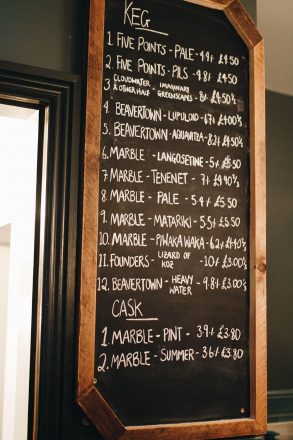 KEG
1. FIVE POINTS - PALE - 4.4% £4.50
2. FIVE POINTS - PILS - 4.8% £4.50
3. CLOUDWATER & OTHER HALF IMAGINARY GREENSCAPES - 8% £4.50½
4. BEAVERTOWN - LUPULOID - 6.7% £4.00½
5. BEAVERTOWN - AQUAVITEA - 8.2% £4.50½
6. MARBLE - LANGOSETINE - 5% £5.50
7. MARBLE - TENENET - 7% £3.40½
8. MARBLE - PALE - 5.4% £5.50
9. MARBLE - MATARIKI - 5.5% £5.50
10. MARBLE - PIWAKAWAKA - 6.2% £4.40½
11. FOUNDERS - LIZARD OF KOZ - 10% £3.00⅓
12. BEAVERTOWN - HEAVY WATER - 9.8% £3.00⅓
CASK
1. MARBLE - PINT - 3.9% £3.80
2. MARBLE - SUMMER - 3.6% £3.80